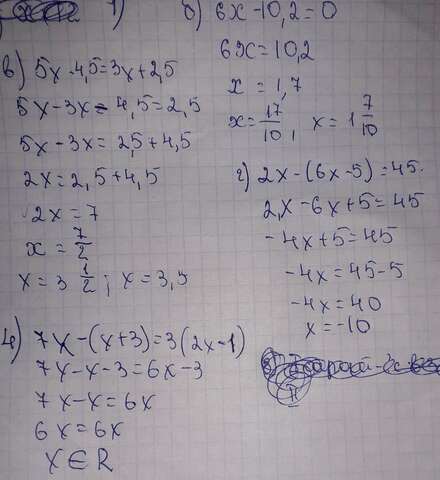 1)
б) 6x-10,2=0
6x=10,2
x=1,7
x=17/10, x=1 7/10
в) 5x-4,5=3x+2,5
5x-3x-4,5=2,5
5x-3x=2,5+4,5
2x=2,5+4,5
2x=7
x=7/2
x=3 1/2; x=3,5
г) 2x-(6x-5)=45.
2x-6x+5=45
-4x+5=45
-4x=45-5
-4x=40
x=-10
4) 7x-(x+3)=3(2x-1)
7x-x-3=6x-3
7x-x=6x
6x=6x
x∈R